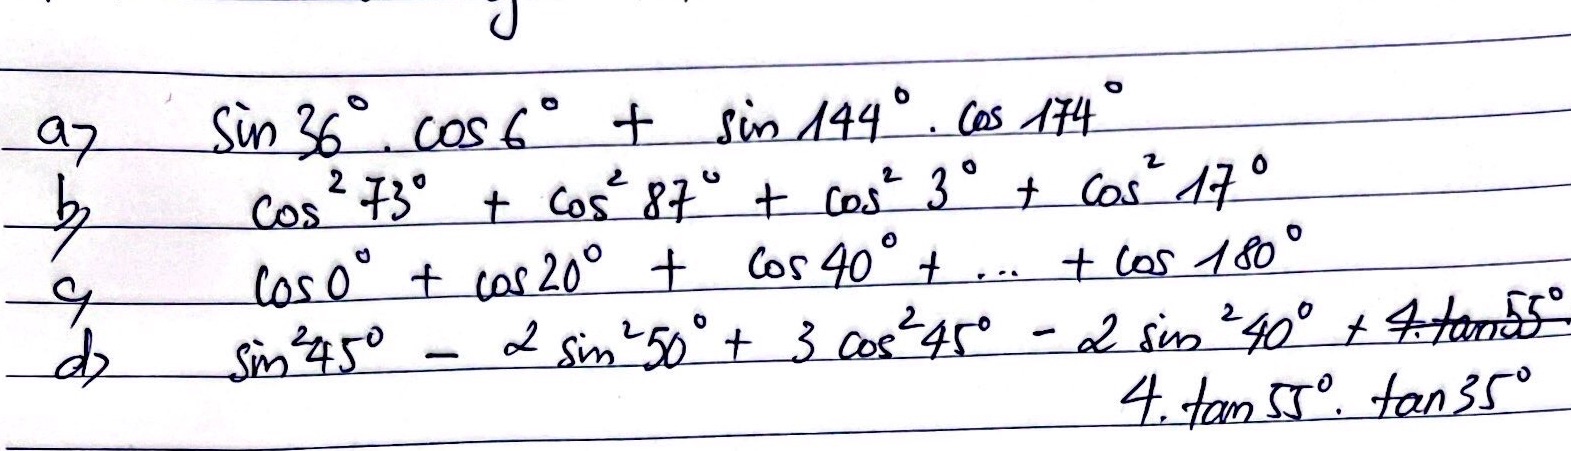 a) sin 36° . cos 6° + sin 144° . cos 174°
b) cos² 73° + cos² 87° + cos² 3° + cos² 17°
c) cos 0° + cos 20° + cos 40° + ... + cos 180°
d) sin² 45° - 2 sin² 50° + 3 cos² 45° - 2 sin² 40° + 4. tan 55°
4. tan 55° . tan 35°